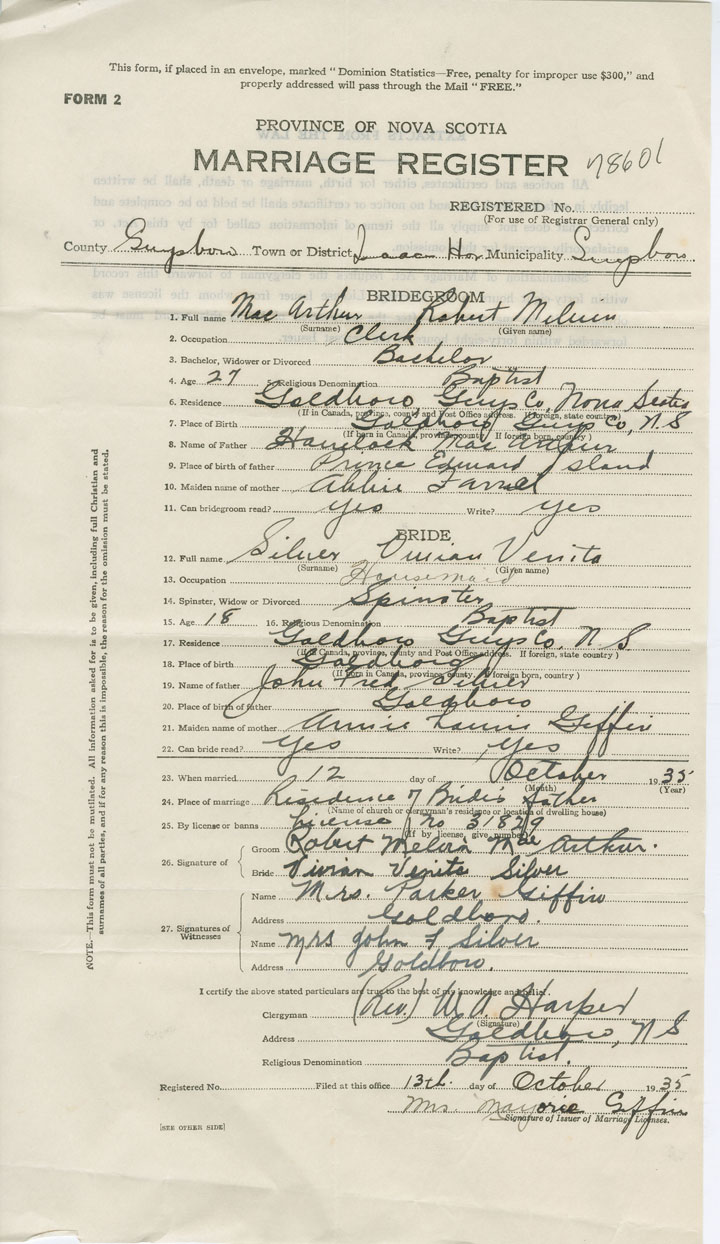 This form, if placed in an envelope, marked "Dominion Statistics—Free, penalty for improper use $300," and
properly addressed will pass through the Mail "FREE."
FORM 2
PROVINCE OF NOVA SCOTIA
MARRIAGE REGISTER 78601
REGISTERED No.
(For use of Registrar General only)
County Guysboro Town or District Isaac Har Municipality Guysboro
BRIDEGROOM
1. Full name Mac Arthur Robert Melvin
(Surname) (Given name)
2. Occupation Clerk
3. Bachelor, Widower or Divorced Bachelor
4. Age 27 5. Religious Denomination Baptist
6. Residence Goldboro, Guys Co, Nova Scotia
(If in Canada, province, county and Post Office address. If foreign, state country)
7. Place of Birth Goldboro Guys Co, N.S
(If born in Canada, province, county. If foreign born, country)
8. Name of Father Havelock Mac Arthur
9. Place of birth of father Prince Edward Island
10. Maiden name of mother Abbie
11. Can bridegroom read? yes Write? yes
BRIDE
12. Full name Silver Vivian Venita
(Surname) (Given name)
13. Occupation Housemaid
14. Spinster, Widow or Divorced Spinster
15. Age 18 16. Religious Denomination Baptist
17. Residence Goldboro Guys Co, N.S.
(If in Canada, province, county and Post Office address. If foreign, state country)
18. Place of birth Goldboro
(If born in Canada, province, county. If foreign born, country)
19. Name of father John Fred Silver
20. Place of birth of father Goldboro
21. Maiden name of mother Annie Giffin
22. Can bride read? yes Write? yes
23. When married 12 day of October 1935
(Month) (Year)
24. Place of marriage Residence of Bride's father
(Name of church or clergyman's residence or location of dwelling house)
25. By license or banns License no 31879
(If by license, give number)
26. Signature of
Groom Robert Melvin Mac Arthur.
Bride Vivian Venita Silver
27. Signatures of Witnesses
Name Mrs. Parker Giffin
Address Goldboro.
Name Mrs John F Silver
Address Goldboro.
I certify the above stated particulars are true to the best of my knowledge and belief.
Clergyman (Rev.) W. A. Harper
(Signature)
Address Goldboro, N S
Religious Denomination Baptist.
Registered No. Filed at this office 13th. day of October 1935
Mrs. Marjorie Giffin
Signature of Issuer of Marriage Licenses.
[SEE OTHER SIDE]
NOTE.—This form must not be mutilated. All information asked for is to be given, including full Christian and
surnames of all parties, and if for any reason this is impossible, the reason for the omission must be stated.